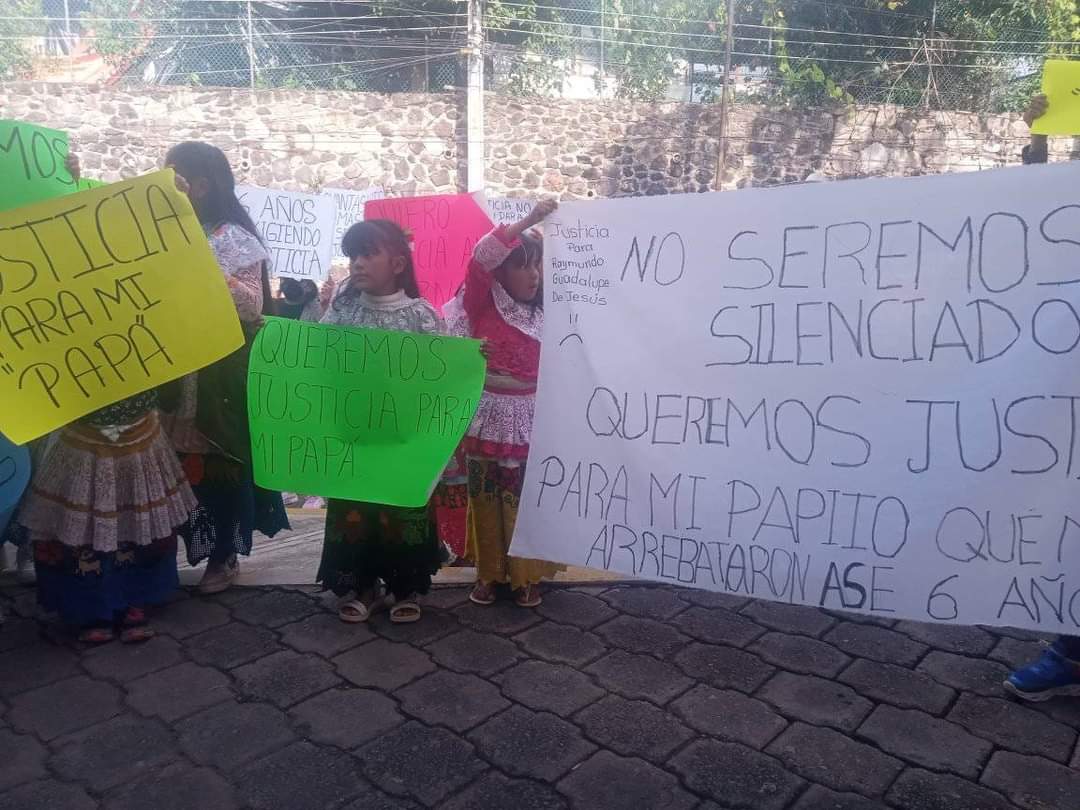 MOS
USTICIA
PARA MI
"PAPÁ"
6 AÑOS
IGIENDO
STICIA
QUEREMOS
JUSTICIA PARA
MI PAPÁ
Justicia
Para
Raymundo
Guadalupe
De Jesús
!!
NO SEREMOS
SILENCIADO
QUEREMOS JUSTI
PARA MI PAPITO QUE N
ARREBATARON ASE 6 AÑO